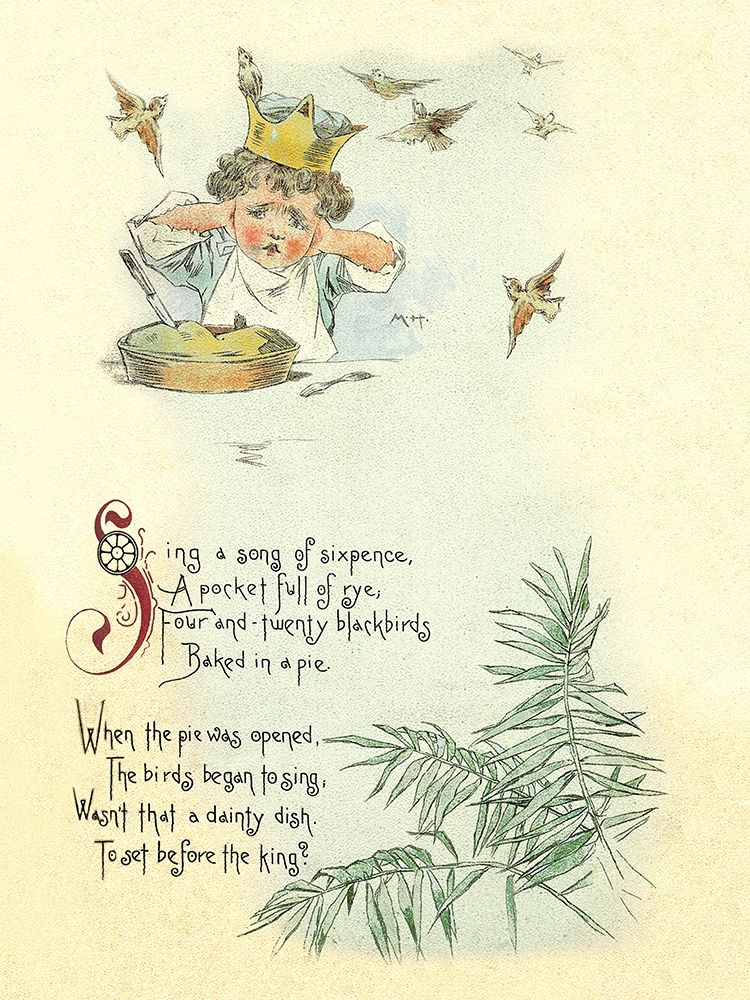 M.H.
Sing a song of sixpence,
A pocket full of rye;
Four and-twenty blackbirds
Baked in a pie.
When the pie was opened,
The birds began to sing;
Wasn't that a dainty dish.
To set before the king?